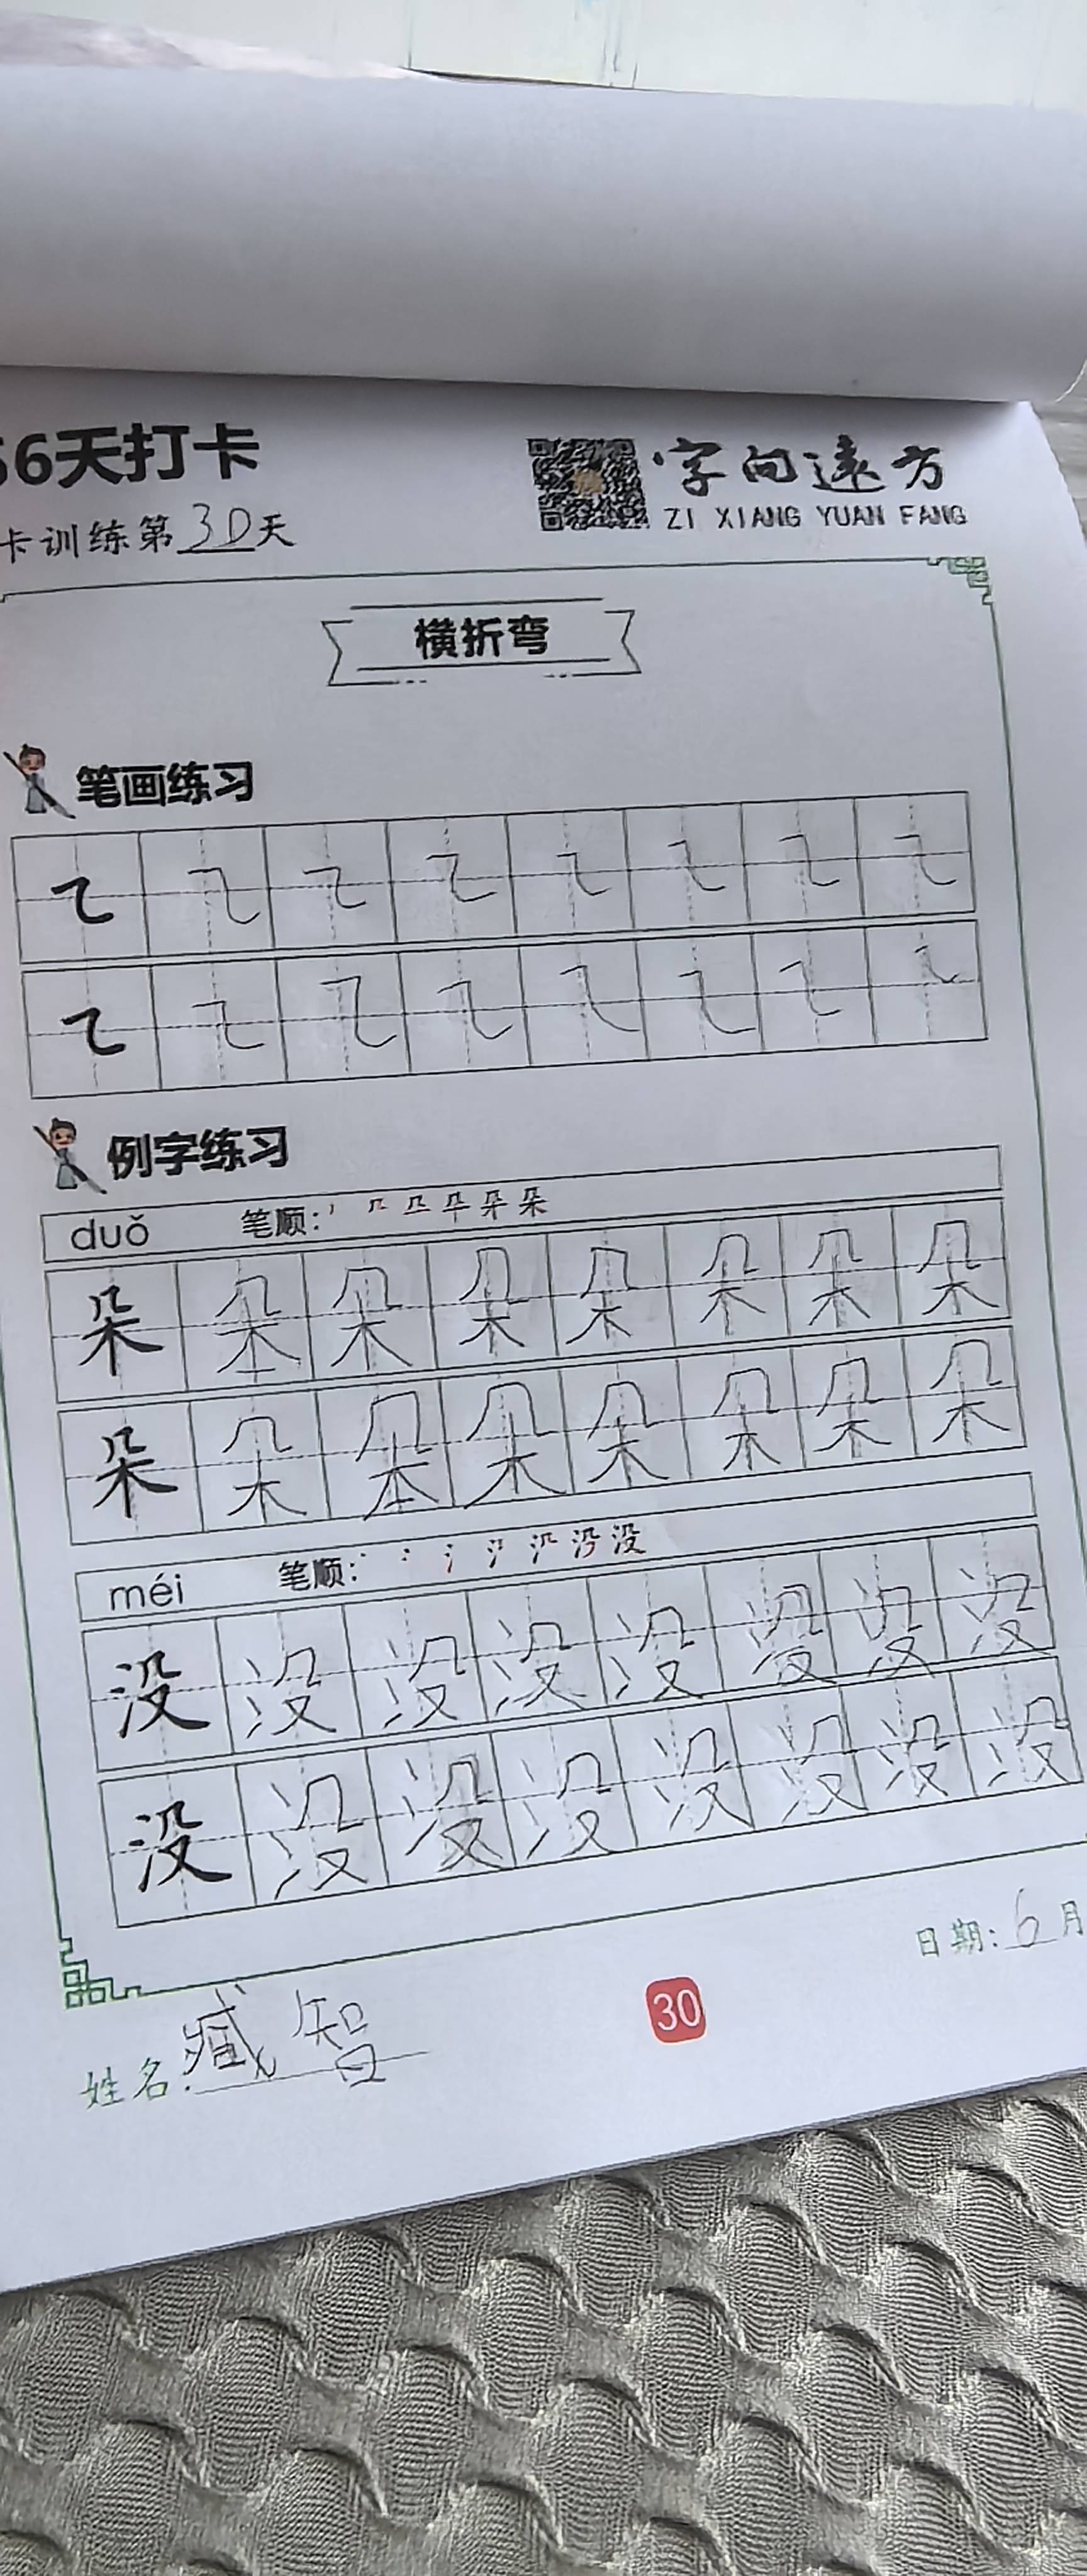 6天打卡
字向远方
ZI XIANG YUAN FANG
卡训练第30天
横折弯
笔画练习
例字练习
duǒ 笔顺:
朵 朵 朵 朵 朵 朵 朵 朵
朵 朵 朵 朵 朵 朵 朵 朵
méi 笔顺:
没 没 没 没 没 没 没 没
没 没 没 没 没 没 没 没
日期: 6月
30
姓名: 臧智